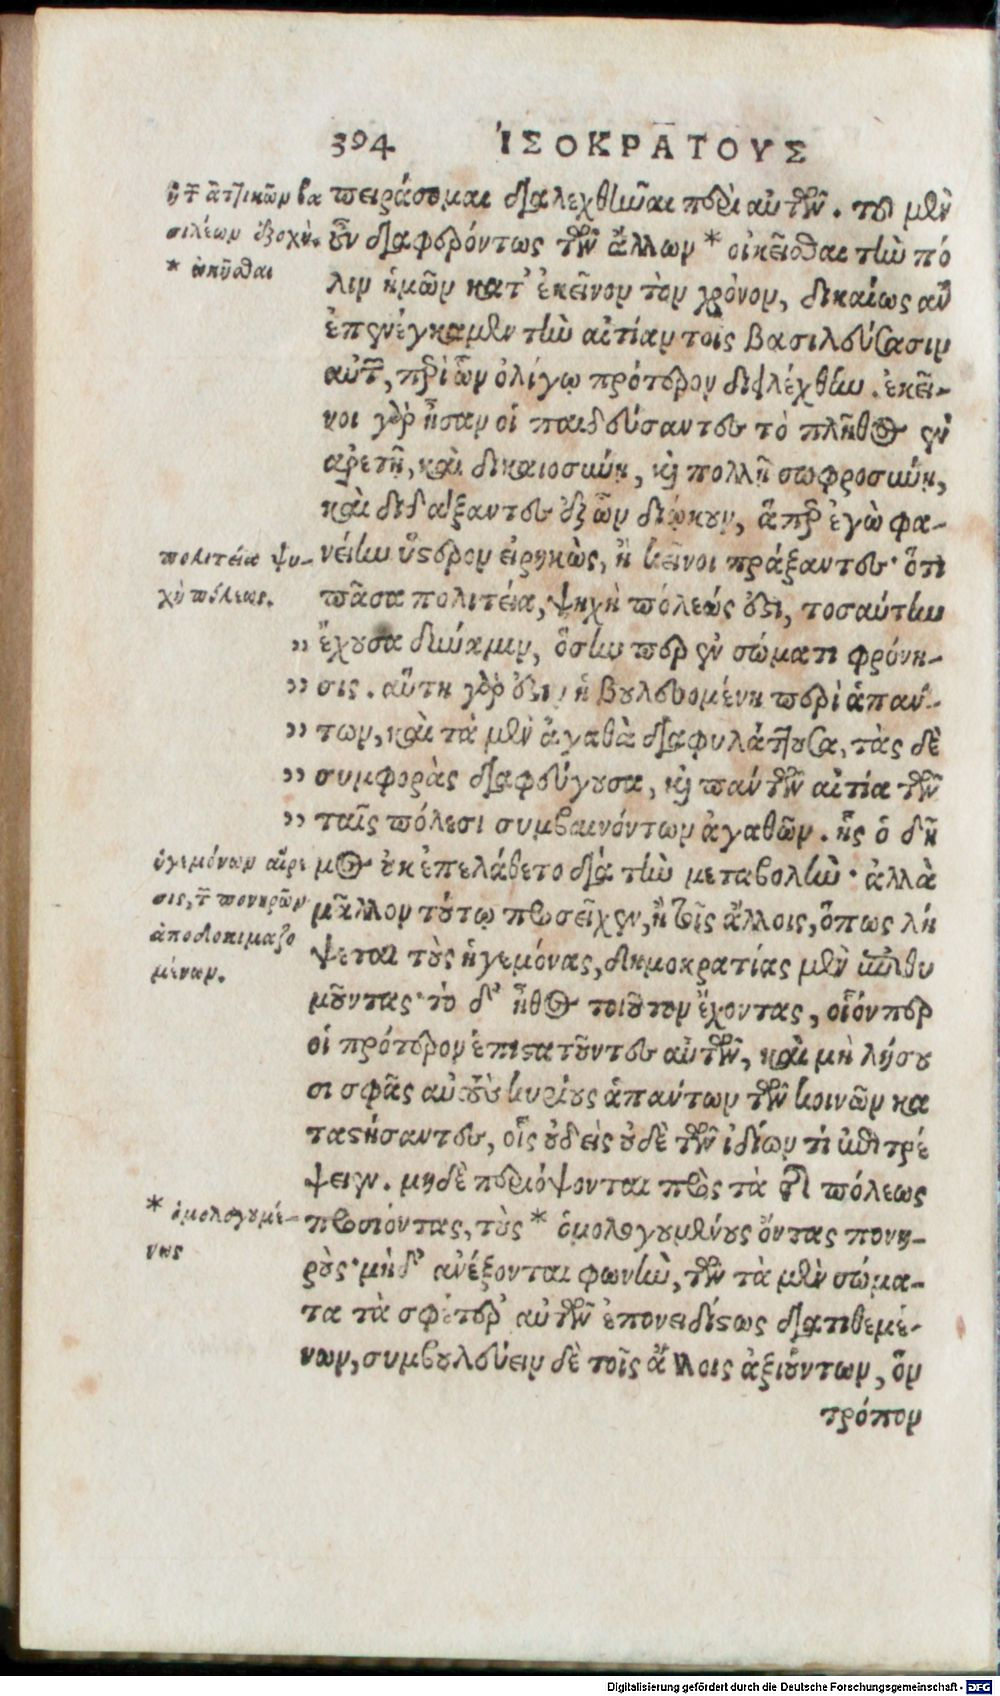 394 ἸΣΟΚΡΑΤΟΥΣ
ἡ τ ἀττικῶν βα
σιλέων ἐξοχὴ.
* ᾠκῆσθαι
πειράσομαι διαλεχθῆναι περὶ αὐτῶν. τοῦ μὲν
οὖν διαφερόντως τῶν ἄλλων * οἰκεῖσθαι τὴν πό
λιν ἡμῶν κατ' ἐκεῖνον τὸν χρόνον, δικαίως ἂν
ἐπενέγκαμεν τὴν αἰτίαν τοῖς βασιλεύσασιν
αὐτῆς, περὶ ὧν ὀλίγῳ πρότερον διελέχθην. ἐκεῖ-
νοι γὰρ ἦσαν οἱ παιδεύσαντες τὸ πλῆθος ἐν
ἀρετῇ, καὶ δικαιοσύνῃ, καὶ πολλῇ σωφροσύνῃ,
καὶ διδάξαντες ἐξ ὧν διῴκουν, ἅπερ ἐγὼ φα-
νείην ὕστερον εἰρηκὼς, ἢ κεῖνοι πράξαντες· ὅτι
πᾶσα πολιτεία, ψυχὴ πόλεώς ἐστι, τοσαύτην
πολιτεία ψυ-
χὴ πόλεως.
„ ἔχουσα δύναμιν, ὅσην περ ἐν σώματι φρόνη-
„ σις. αὕτη γάρ ἐστιν ἡ βουλευομένη περὶ ἁπάν-
„ των, καὶ τὰ μὲν ἀγαθὰ διαφυλάττουσα, τὰς δὲ
„ συμφορὰς διαφεύγουσα, καὶ πάντων αἰτία τῶν
„ ταῖς πόλεσι συμβαινόντων ἀγαθῶν. ἧς ὁ δῆ
μος οὐκ ἐπελάθετο διὰ τὴν μεταβολὴν· ἀλλὰ
μᾶλλον τούτῳ προσεῖχεν, ἢ τοῖς ἄλλοις, ὅπως λή
ψεται τοὺς ἡγεμόνας, δημοκρατίας μὲν ἐπιθυ
ἡγεμόνων αἵρε
σις, τ πονηρῶν
ἀποδοκιμαζο
μένων.
μοῦντας· τὸ δ' ἦθος τοιοῦτον ἔχοντας, οἷόνπερ
οἱ πρότερον ἐπιστατοῦντες αὐτῶν, καὶ μὴ λήσου
σι σφᾶς αὐτοὺς κυρίους ἁπάντων τῶν κοινῶν κα
ταστήσαντες, οἷς οὐδεὶς οὐδὲ τῶν ἰδίων τι ἐπιτρέ
ψειεν. μηδὲ περιόψονται πρὸς τὰ τῆς πόλεως
προσιόντας, τοὺς * ὁμολογουμένους ὄντας πονη-
* ὁμολογουμέ-
νως
ροὺς· μηδ' ἀνέξονται φωνὴν, τῶν τὰ μὲν σώμα-
τα τὰ σφέτερ' αὐτῶν ἐπονειδίστως διατιθεμέ-
νων, συμβουλεύειν δὲ τοῖς ἄλλοις ἀξιούντων, ὃν
τρόπον
Digitalisierung gefördert durch die Deutsche Forschungsgemeinschaft - DFG